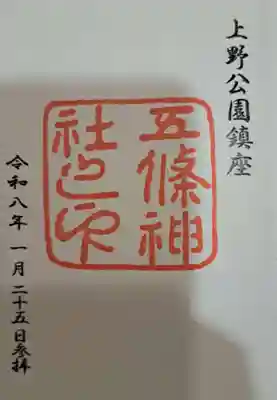 上野公園鎮座
五條神
社之印
令和八年一月二十五日参拝